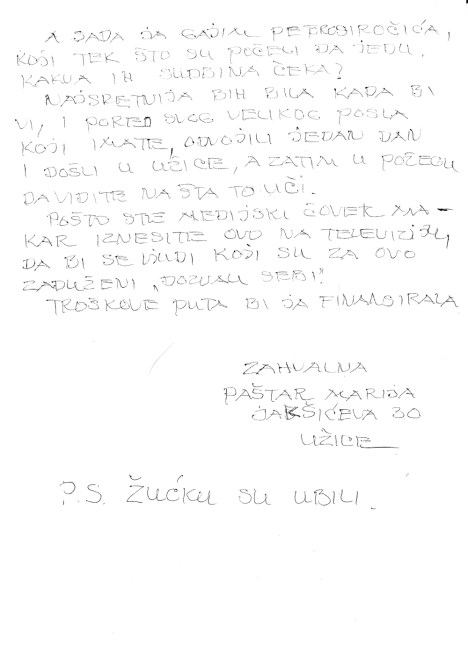 A SADA JA GAJIM PETOSIROČIĆA,
KOJI TEK ŠTO SU POČELI DA JEDU.
KAKVA IH SUDBINA ČEKA?
NAJSRETNIJA BIH BILA KADA BI
VI, I PORED SVOG VELIKOG POSLA
KOJI IMATE, ODVOJILI JEDAN DAN
I DOŠLI U UŽICE, A ZATIM U POŽEGU
DA VIDITE NA ŠTA TO LIČI.
POŠTO STE MEDIJSKI ČOVEK MA-
KAR IZNESITE OVO NA TELEVIZIJU,
DA BI SE LJUDI KOJI SU ZA OVO
ZADUŽENI „DOZVALI SEBI“
TROŠKOVE PUTA BI JA FINANSIRALA
ZAHVALNA
PAŠTAR MARIJA
JAKŠIĆEVA 30
UŽICE
P.S. ŽUĆKU SU UBILI.